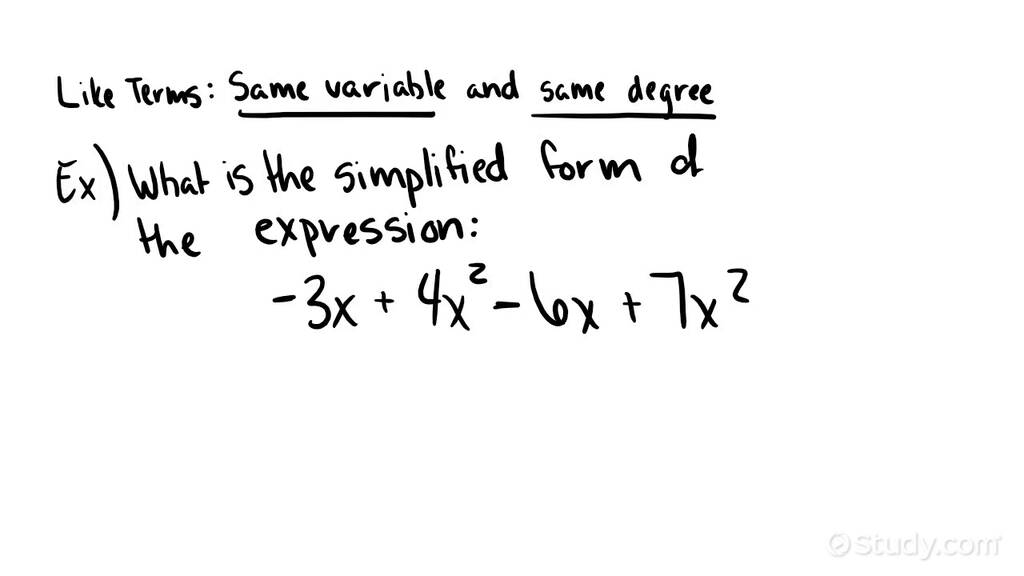 Like Terms: Same variable and same degree
Ex) What is the simplified form of
the expression:
-3x + 4x² - 6x + 7x²
Study.com